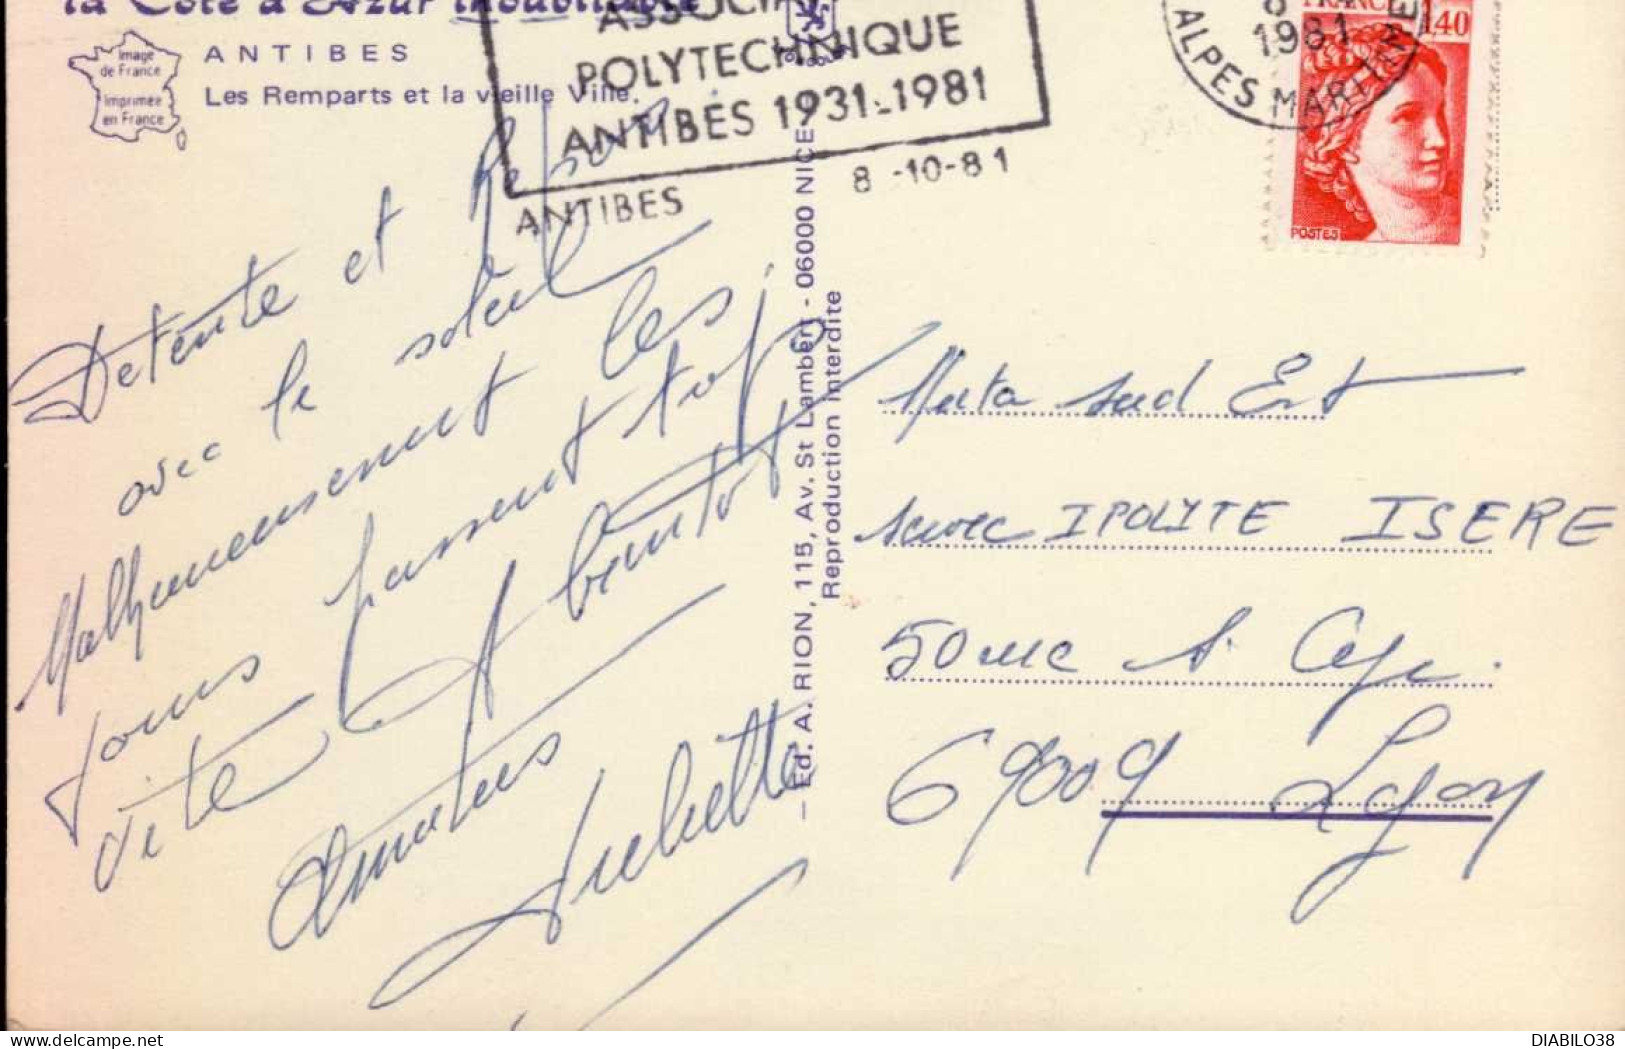 la Côte d'Azur inoubliable
Image
de France
Imprimée
en France
ANTIBES
Les Remparts et la vieille Ville.
POLYTECHNIQUE
ANTIBES 1931-1981
ANTIBES
8 -10-81
1981
ALPES MARITIMES
FRANCE
1,40
POSTES
Detente et Repos
avec le soleil
Malheureusement les
jours passent trop
vite A bientot
Amities
Juliette
Ed. A. RION, 115, Av. St Lambert - 06000 NICE
Reproduction interdite
Muta sud Est
IPOLYTE ISERE
50
69009 Lyon
DIABILO38